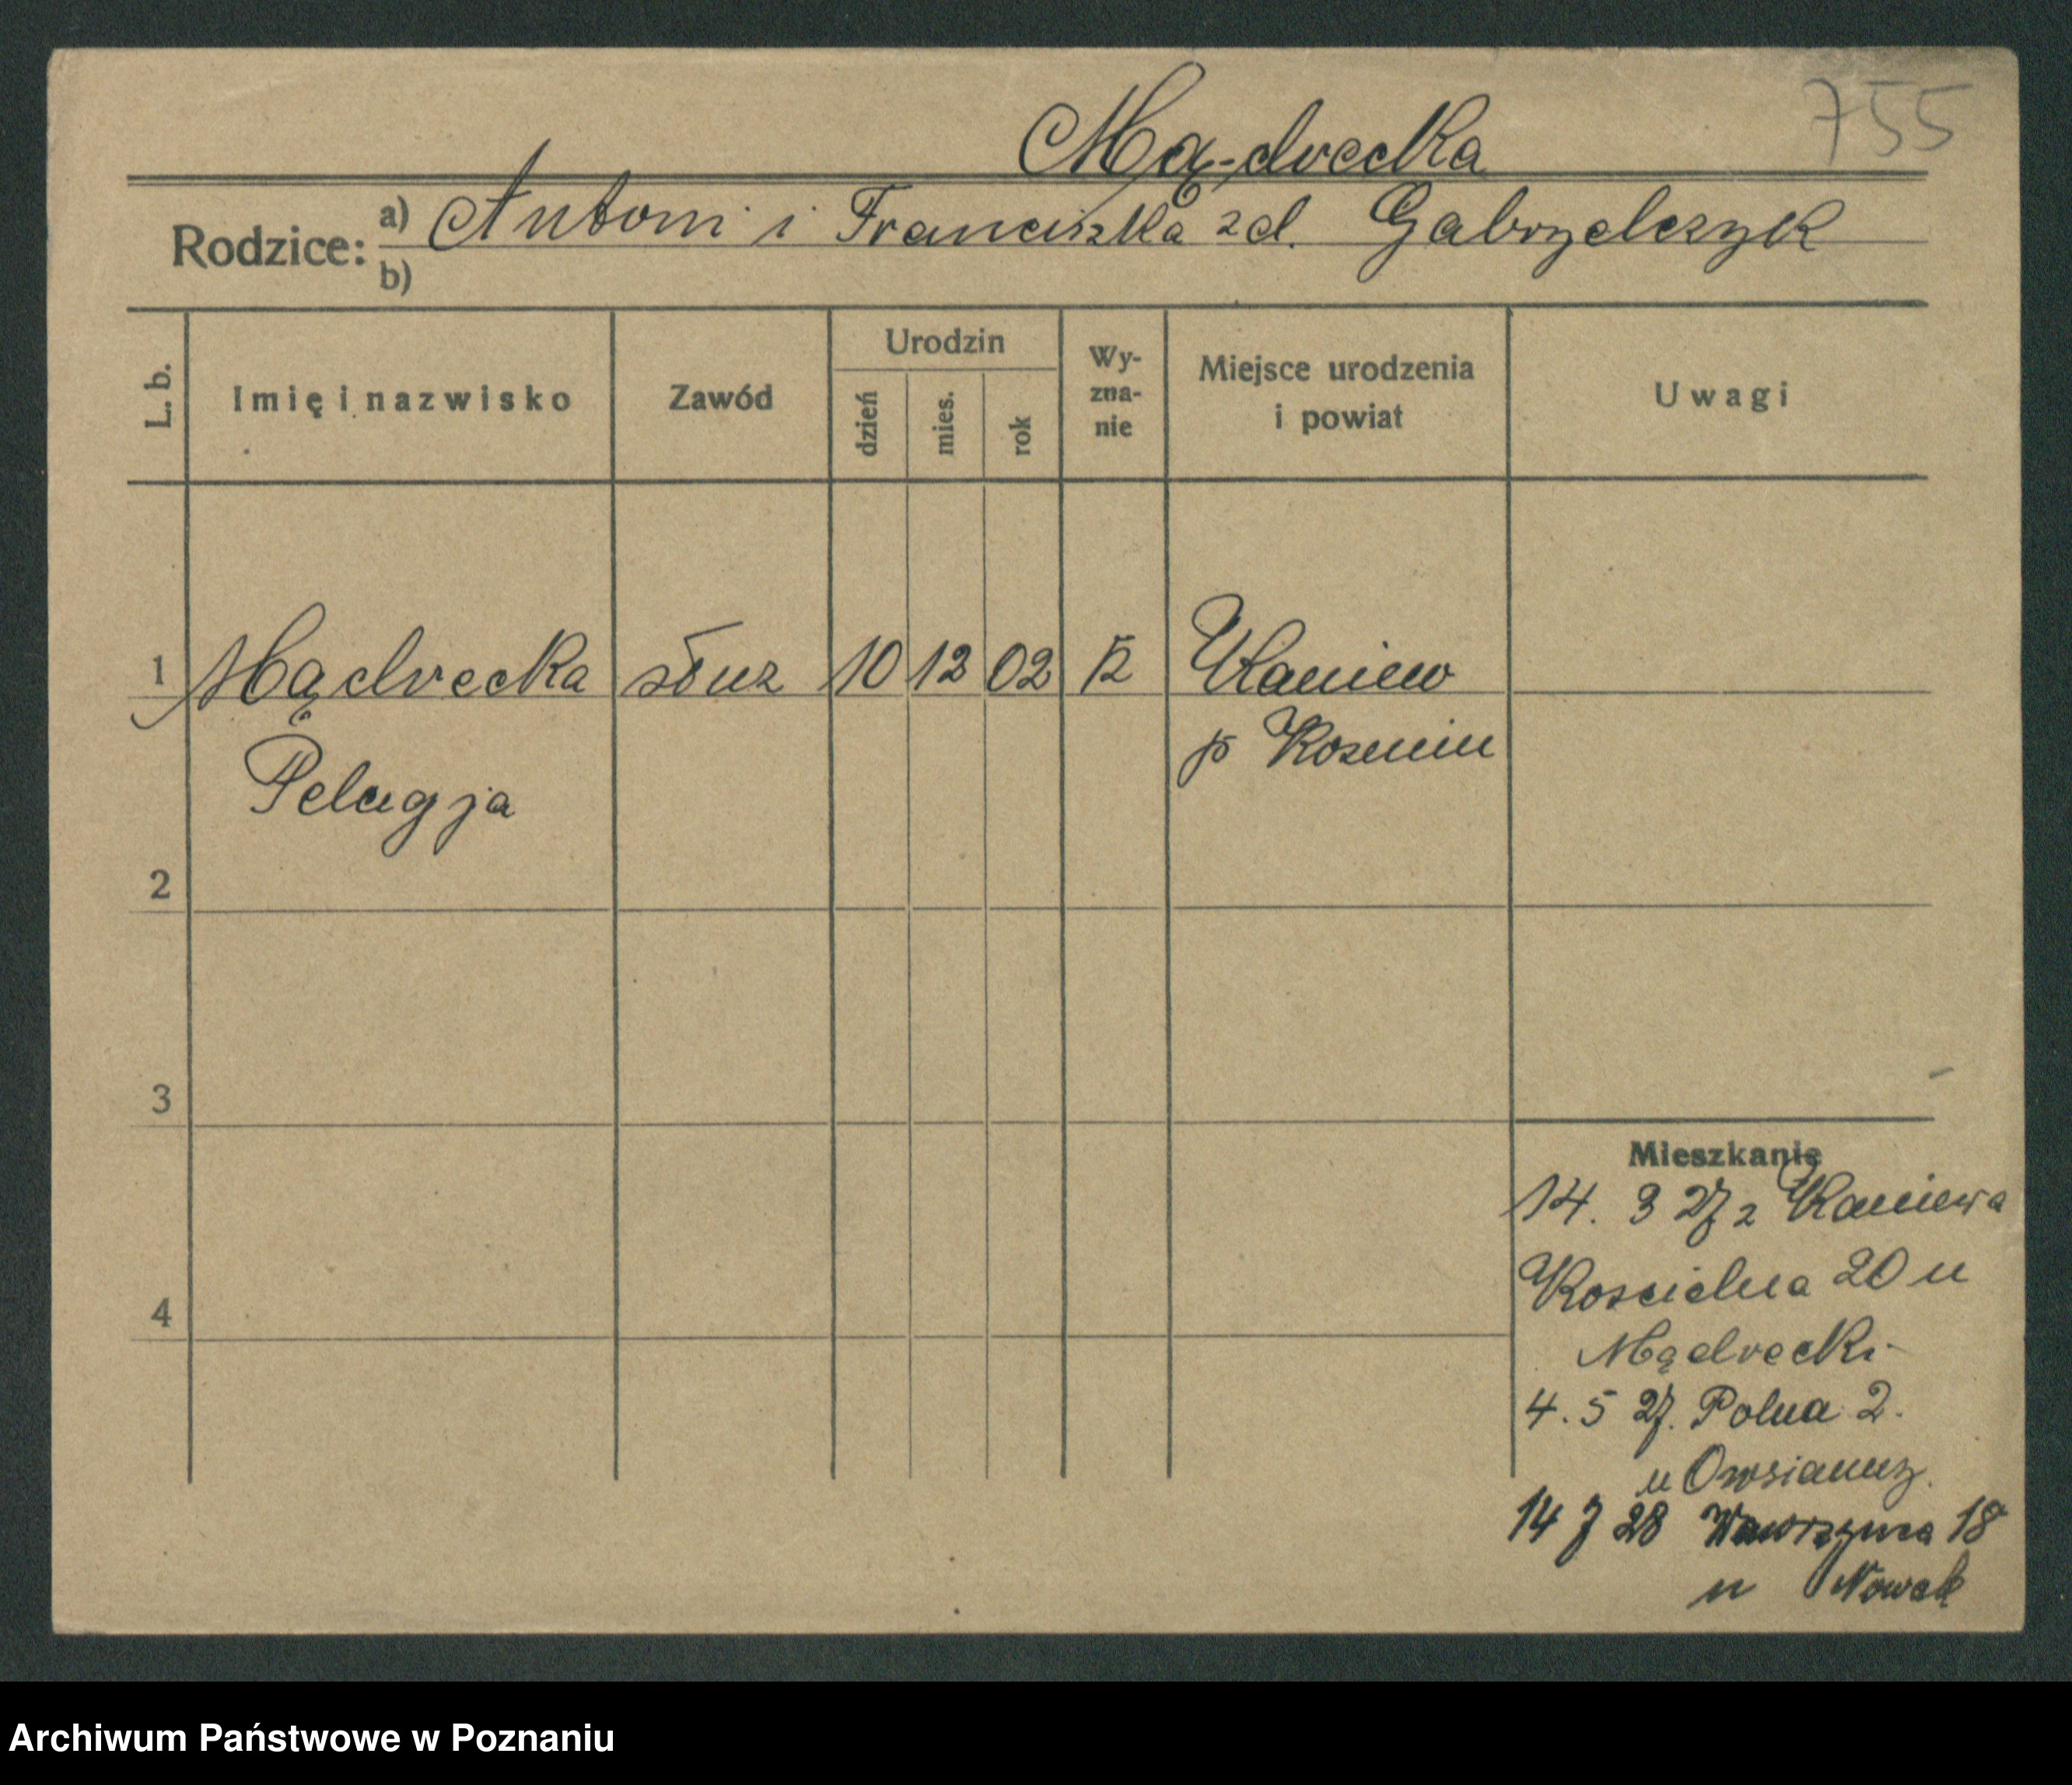 755
Mą-drecka
Rodzice: a) Antoni i Franciszka zd. Gabryelczyk
b)
L. b. Imię i nazwisko Zawód Urodzin dzień mies. rok Wy-zna-nie Miejsce urodzenia i powiat Uwagi
1 Mądrecka służ 10 12 02 K Kaniew
Pelagja p Kozmin
2
3
4
Mieszkanie
14. 3 27 z Kaniewa
Koscielna 20 u
Mądrecki
4. 5 27. Polna 2.
u Owsianny.
14 7 28 Wawrzynca 18
u Nowak
Archiwum Państwowe w Poznaniu